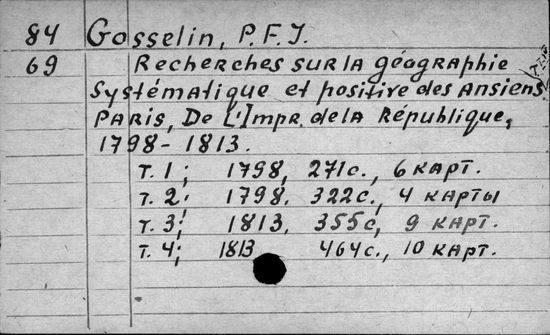 84 Gosselin, P.F.J.
69 Recherches sur la géographie
Systématique et positive des Ansiens
Paris, De L'Impr. de la République,
1798-1813.
Т. 1; 1798, 271с., 6 карт.
Т. 2; 1798. 322с., 4 карты
Т. 3; 1813. 355с, 9 карт.
Т. 4; 1813 464с., 10 карт.